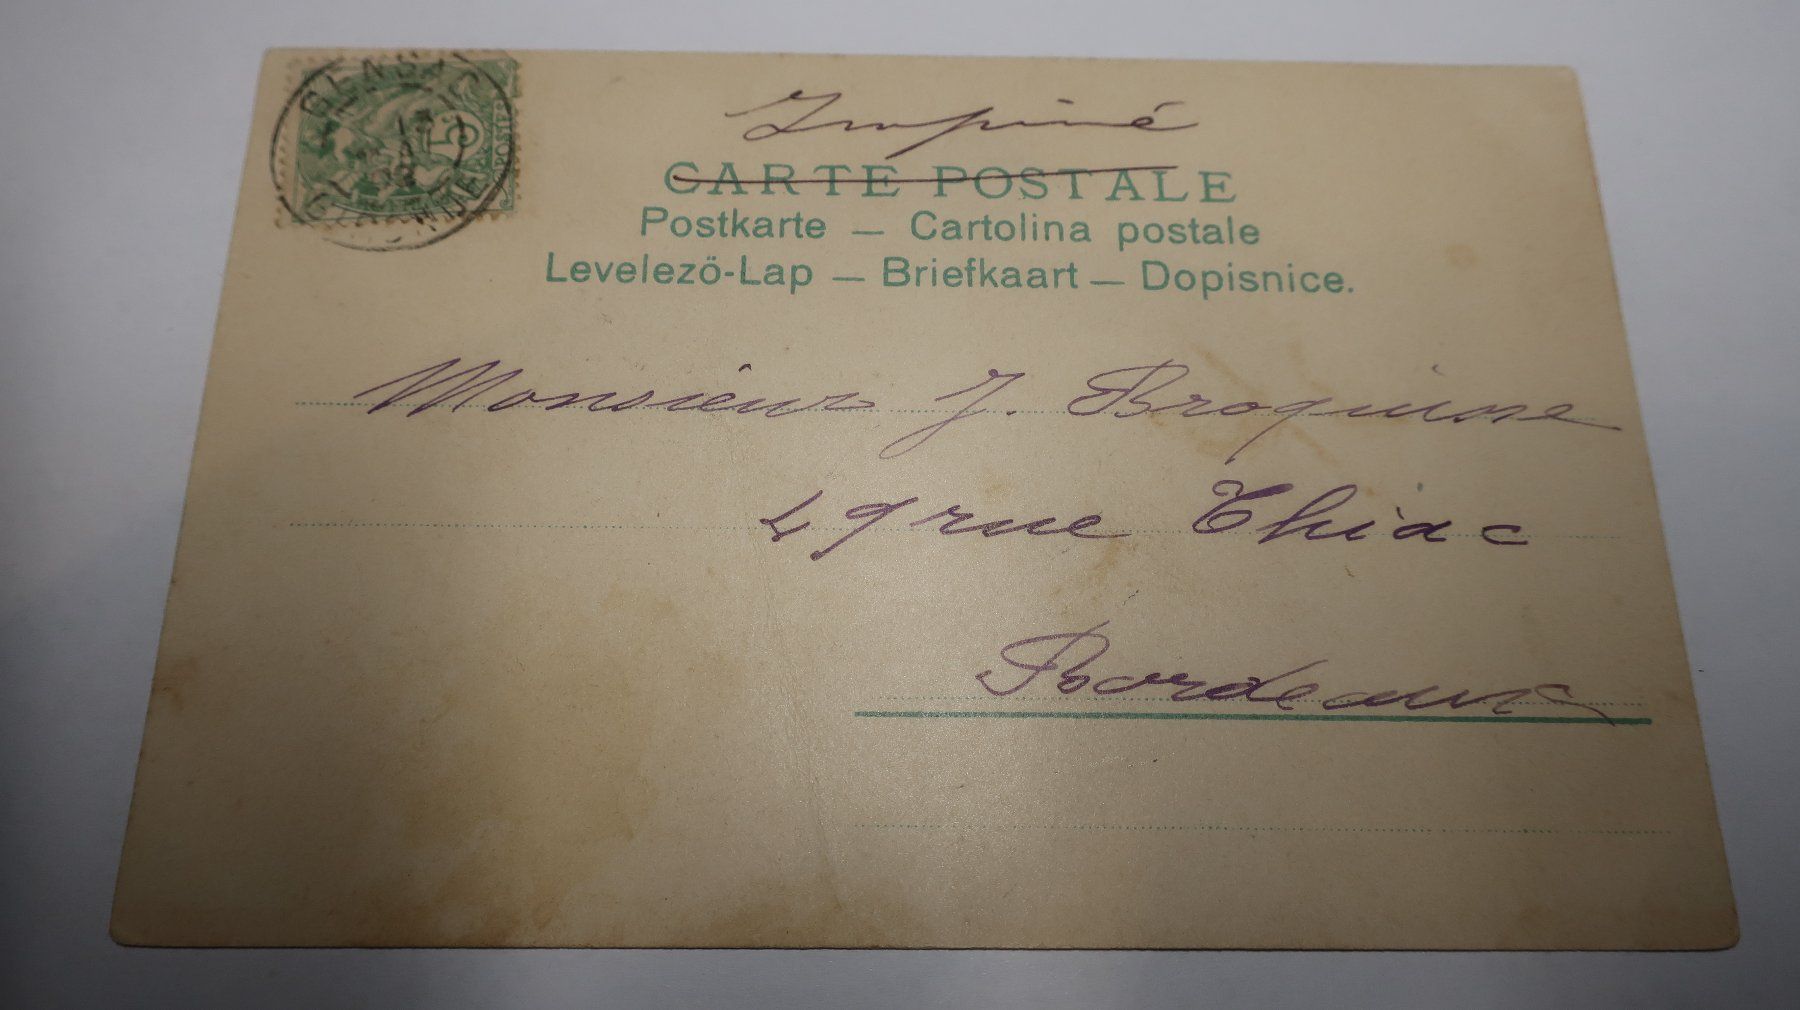 Imprimé
CARTE POSTALE
Postkarte — Cartolina postale
Levelező-Lap — Briefkaart — Dopisnice.
Monsieur J. Broquisse
49 rue Thiac
Bordeaux
5
POSTES
GENSAC
GIRONDE